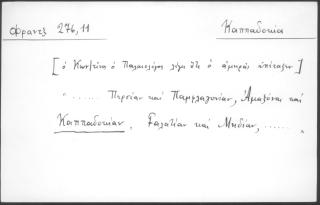 Φραντζ 276,11 Καππαδοκία
[ὁ Κων/τῖνο ὁ Παλαιολόγος λέγει ὅτι ὁ ἀμηρᾶς ὑπέταξεν]
"...... Περσίαν καὶ Παμφλαγονίαν, Ἀμαζόνας καὶ
Καππαδοκίαν, Γαλατίαν καὶ Μηδίαν, ...... "